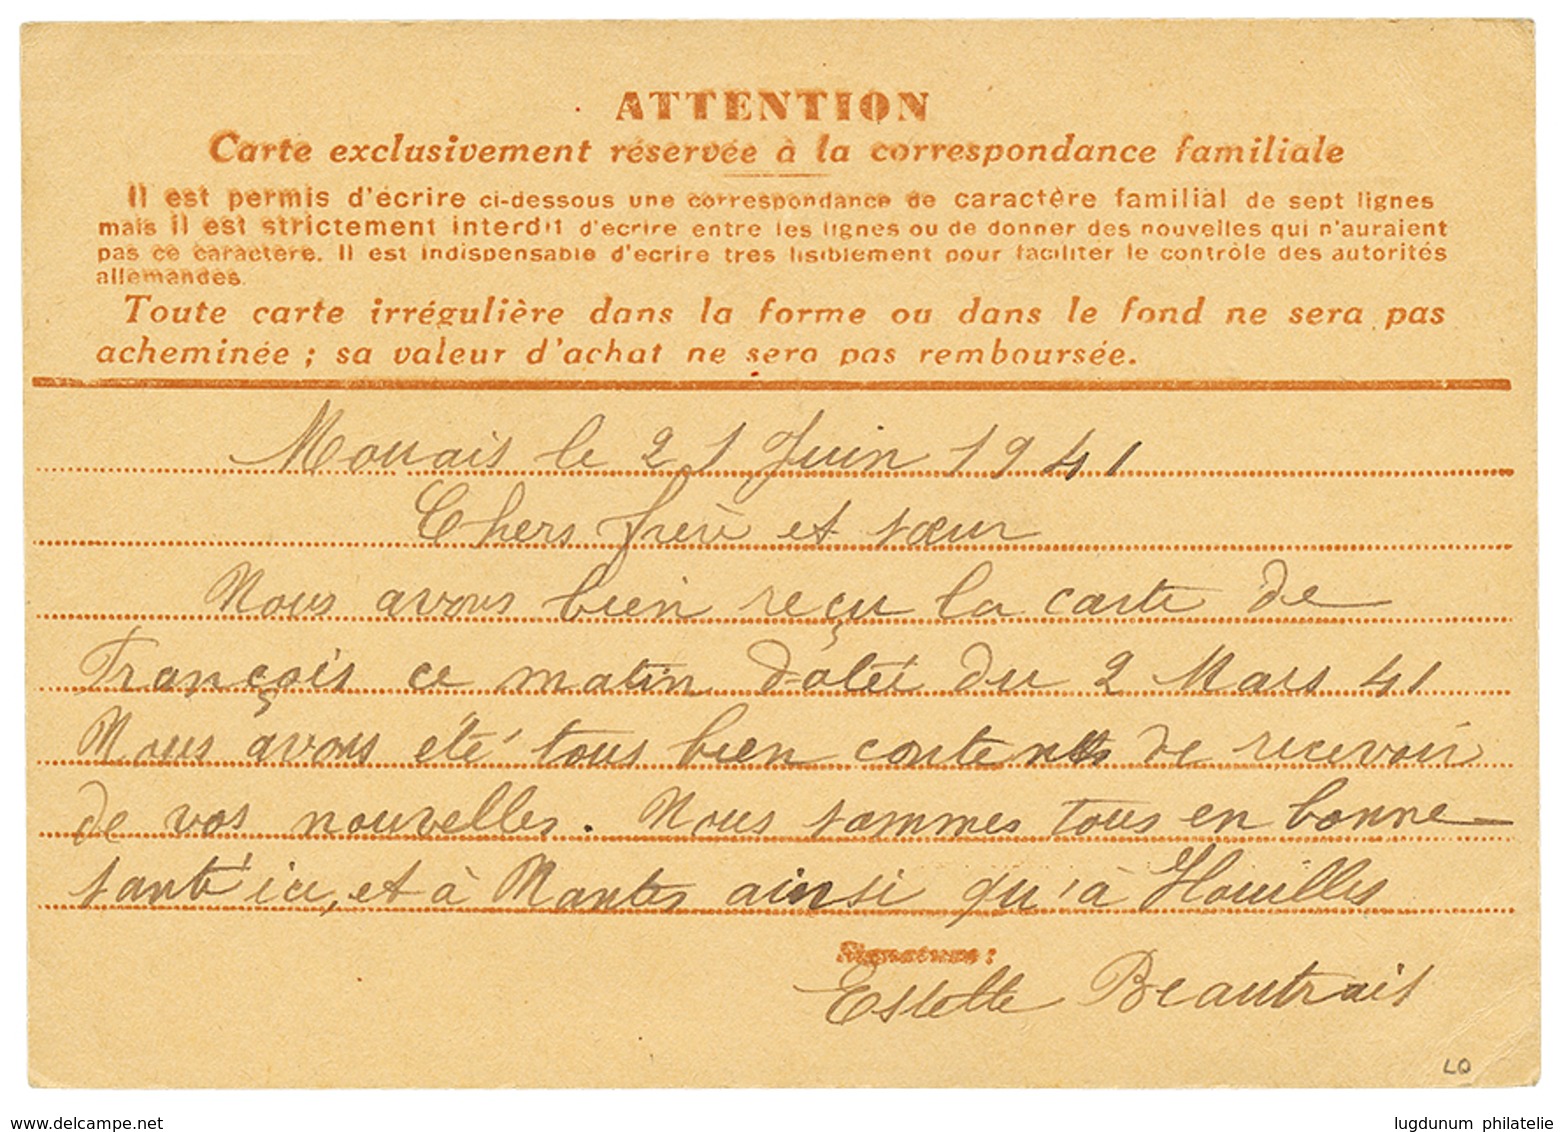 ATTENTION
Carte exclusivement réservée à la correspondance familiale
Il est permis d'écrire ci-dessous une correspondance de caractère familial de sept lignes
mais il est strictement interdit d'ecrire entre les lignes ou de donner des nouvelles qui n'auraient
pas ce caractere. Il est indispensable d'ecrire tres lisiblement pour faciliter le contrôle des autorités
allemandes.
Toute carte irrégulière dans la forme ou dans le fond ne sera pas
acheminée ; sa valeur d'achat ne sera pas remboursée.
Mouais le 21 Juin 1941
Chers frère et sœur
Nous avons bien reçu la carte de
François ce matin datée du 2 Mars 41
Nous avons été tous bien contents de recevoir
de vos nouvelles. Nous sommes tous en bonne
santé ici, et à Nantes ainsi qu'à Houilles
Signature :
Estelle Beautrais
LQ
www.delcampe.net
lugdunum philatelie